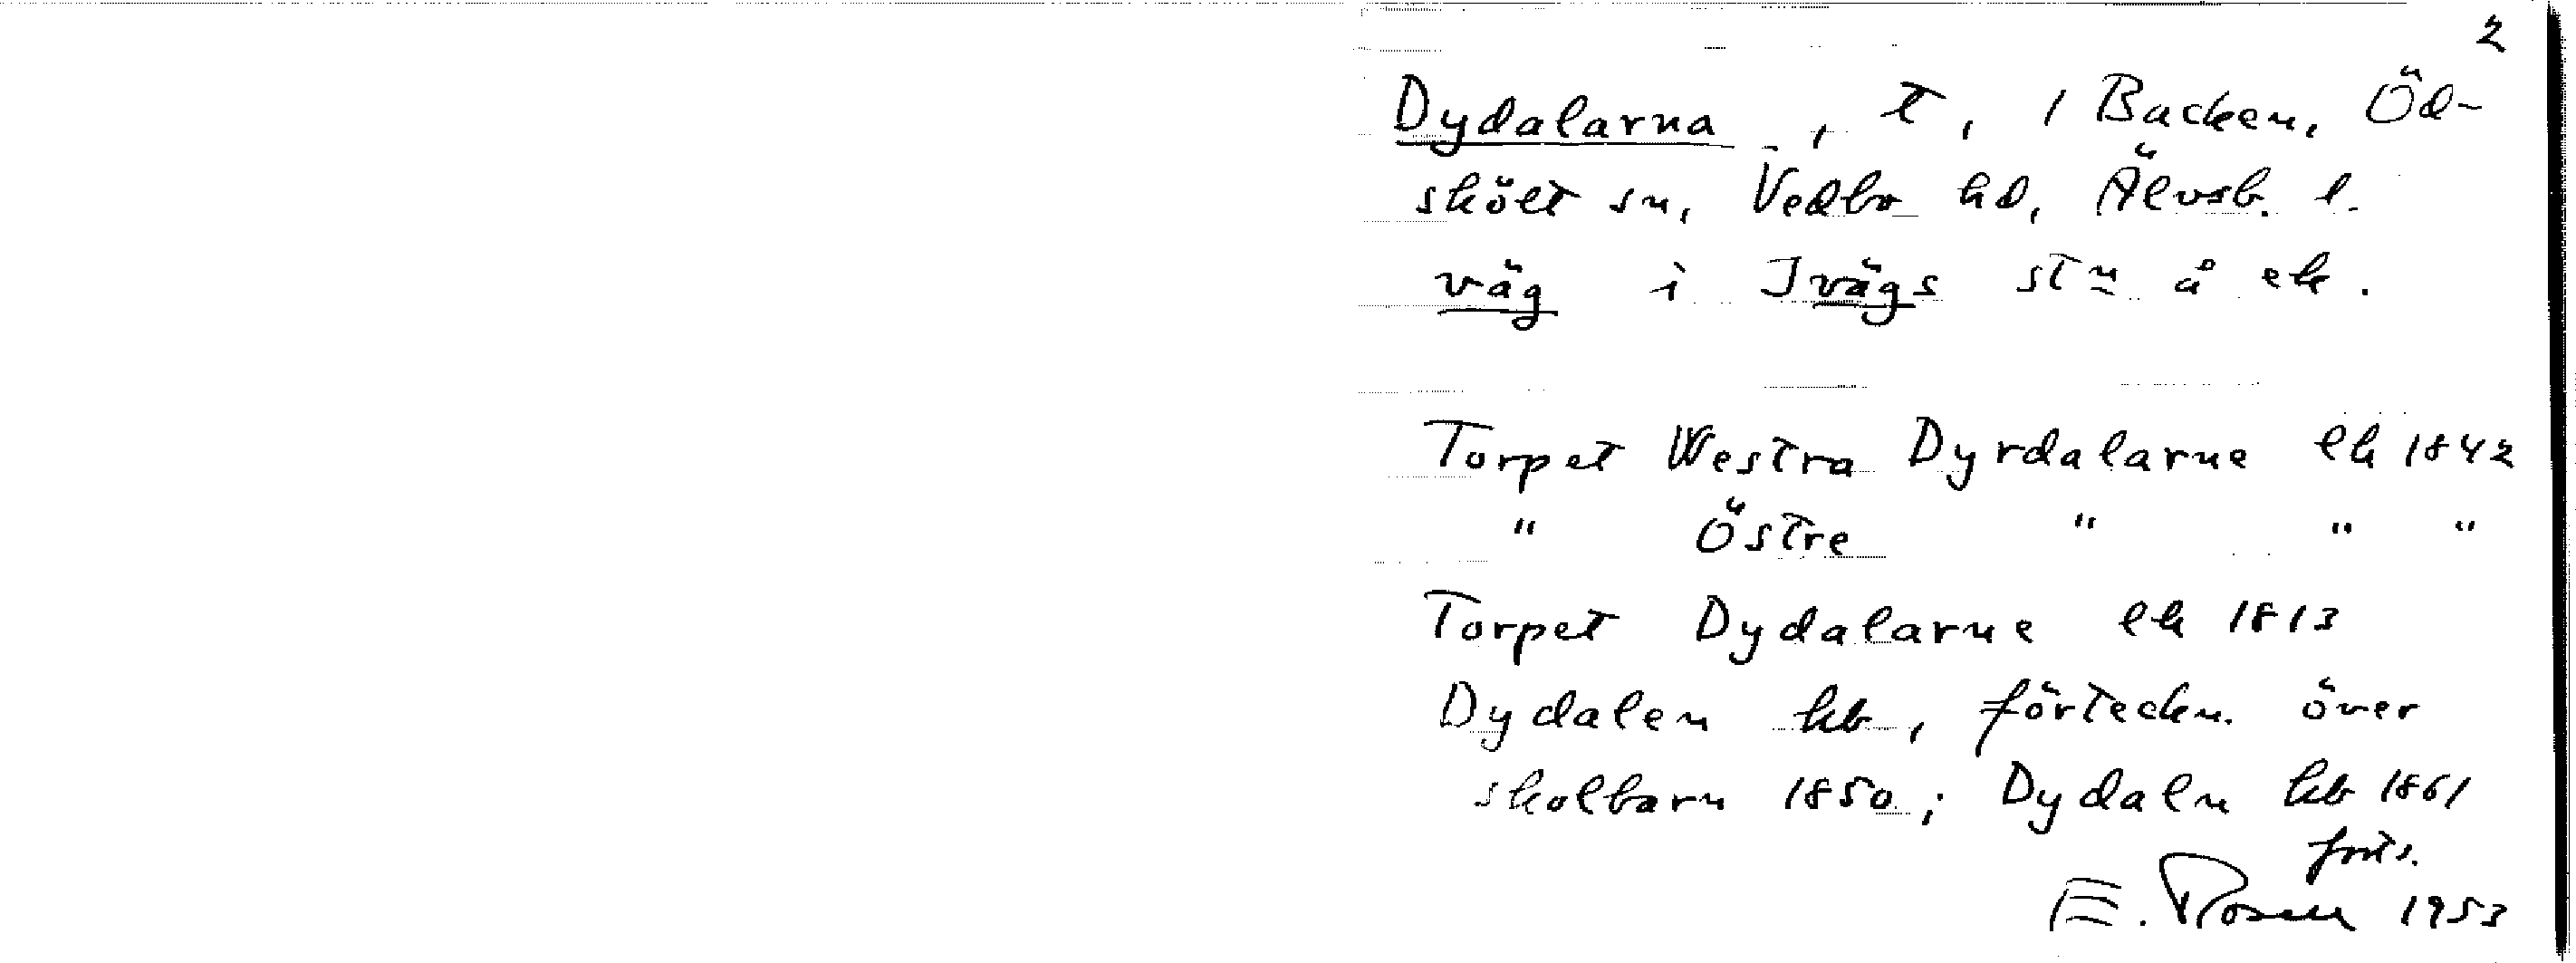 2
Dydalarna, t, 1 Backen, Öd-
skölt sn, Vedbo hd, Älvsb. l.
väg i Ivägs stn å ek.
Torpet Westra Dyrdalarne lh 1842
" Östre " " "
Torpet Dydalarne lh 1813
Dydalen kb, förteckn. över
skolbarn 1850; Dydaln kb 1861
forts.
E. Rosell 1953